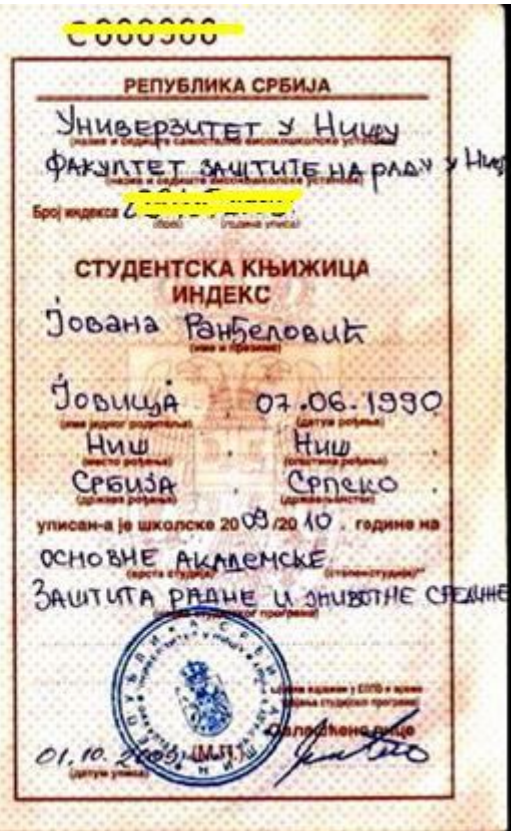 С000900
РЕПУБЛИКА СРБИЈА
Универзитет у Нишу
(назив и седиште самосталне високошколске установе)
Факултет заштите на раду у Нишу
(назив и седиште високошколске установе)
Број индекса
(број) (година уписа)
СТУДЕНТСКА КЊИЖИЦА
ИНДЕКС
Јована Ранђеловић
(име и презиме)
Јовица 07.06.1990
(име једног родитеља) (датум рођења)
Ниш Ниш
(место рођења) (општина рођења)
Србија Српско
(држава рођења) (држављанство)
уписан-а је школске 2009/2010. године на
основне академске
(врста студија) (степен студија)
Заштита радне и животне средине
(назив студијског програма)
Овлашћено лице
01.10.2009. (М.П.)
(датум уписа)